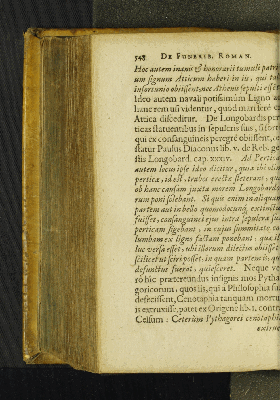 548 DE FUNERIB. ROMAN.
Hoc autem inanis & honorarii tumuli patri
um signum Atticum haberi in iis, qui tali
infortunio obiissent, nec Athenis sepulti essent
Ideo autem navali potissimum Ligno ad
hanc rem usi videntur, quod mari ferè ex
Attica disceditur. De Longobardis per-
ticas statuentibus in sepulcris suis, si fortè
qui ex consanguineis peregrè obiissent, o-
statur Paulus Diaconus lib. v. de Reb. ge-
stis Longobard. cap. XXXIV. Ad Pertica
autem locus ipse ideo dicitur, quia ibi olim
perticæ, id est, trabes erectæ steterant, quæ
ob hanc causam juxta morem Longobardo-
rum poni solebant. Si quis enim in aliquam
partem aut in bello quomodocunque extinctus
fuisset, consanguinei ejus intra sepulcra sua
perticam figebant, in cujus summitate co-
lumbam ex ligno factam ponebant: quæ il-
luc versa esset, ubi illorum dilectus obiisset;
scilicet ut sciri posset, in quam partem is, qui
defunctus fuerat, quiesceret. Neque ve-
rò hîc prætereundus insignis mos Pytha-
goricorum, quo iis, qui à Philosophia sua
defecissent, Cenotaphia tanquam mortu-
is extruxisse, patet ex Origene lib. 1. contra
Celsum: Ceterùm Pythagorei cenotaphia